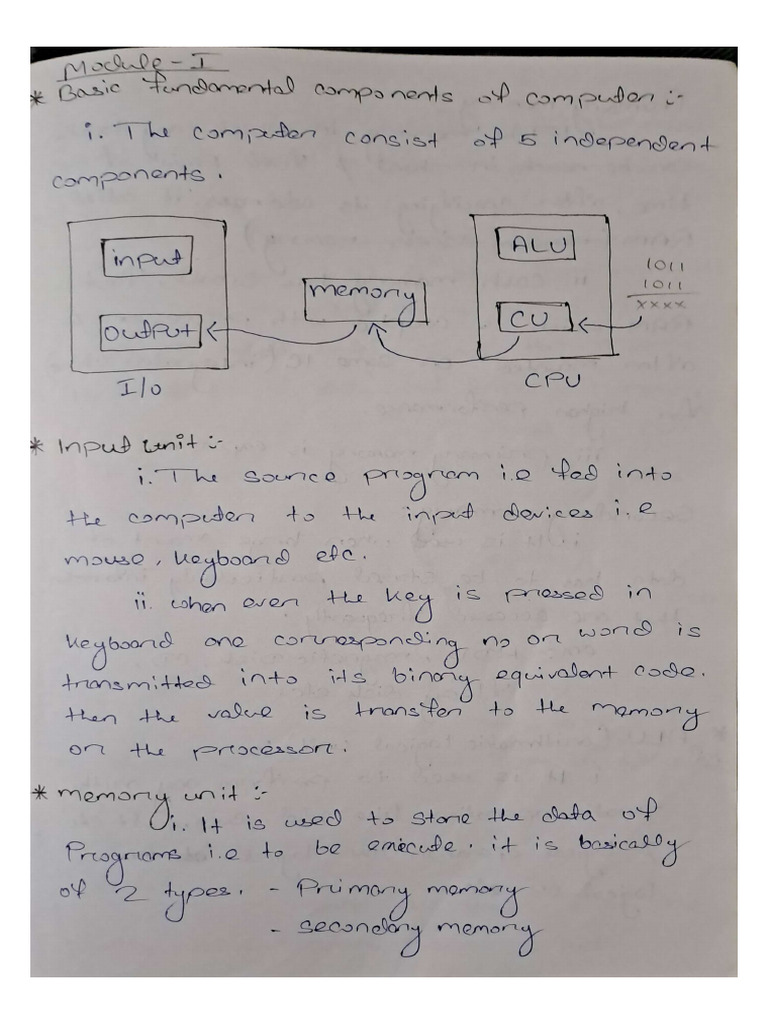 Module - I
* Basic fundamental components of computer :-
i. The computer consist of 5 independent
components.
input
output
I/o
memory
ALU
CU
CPU
1011
1011
xxxx
* Input unit :-
i. The source program i.e fed into
the computer to the input devices i.e
mouse, keyboard etc.
ii. when ever the key is pressed in
keyboard one corresponding no or word is
transmitted into its binary equivalent code.
then the value is transfer to the memory
or the processor.
* memory unit :-
i. It is used to store the data of
Programs i.e to be execute. it is basically
of 2 types. - Primary memory
- secondary memory